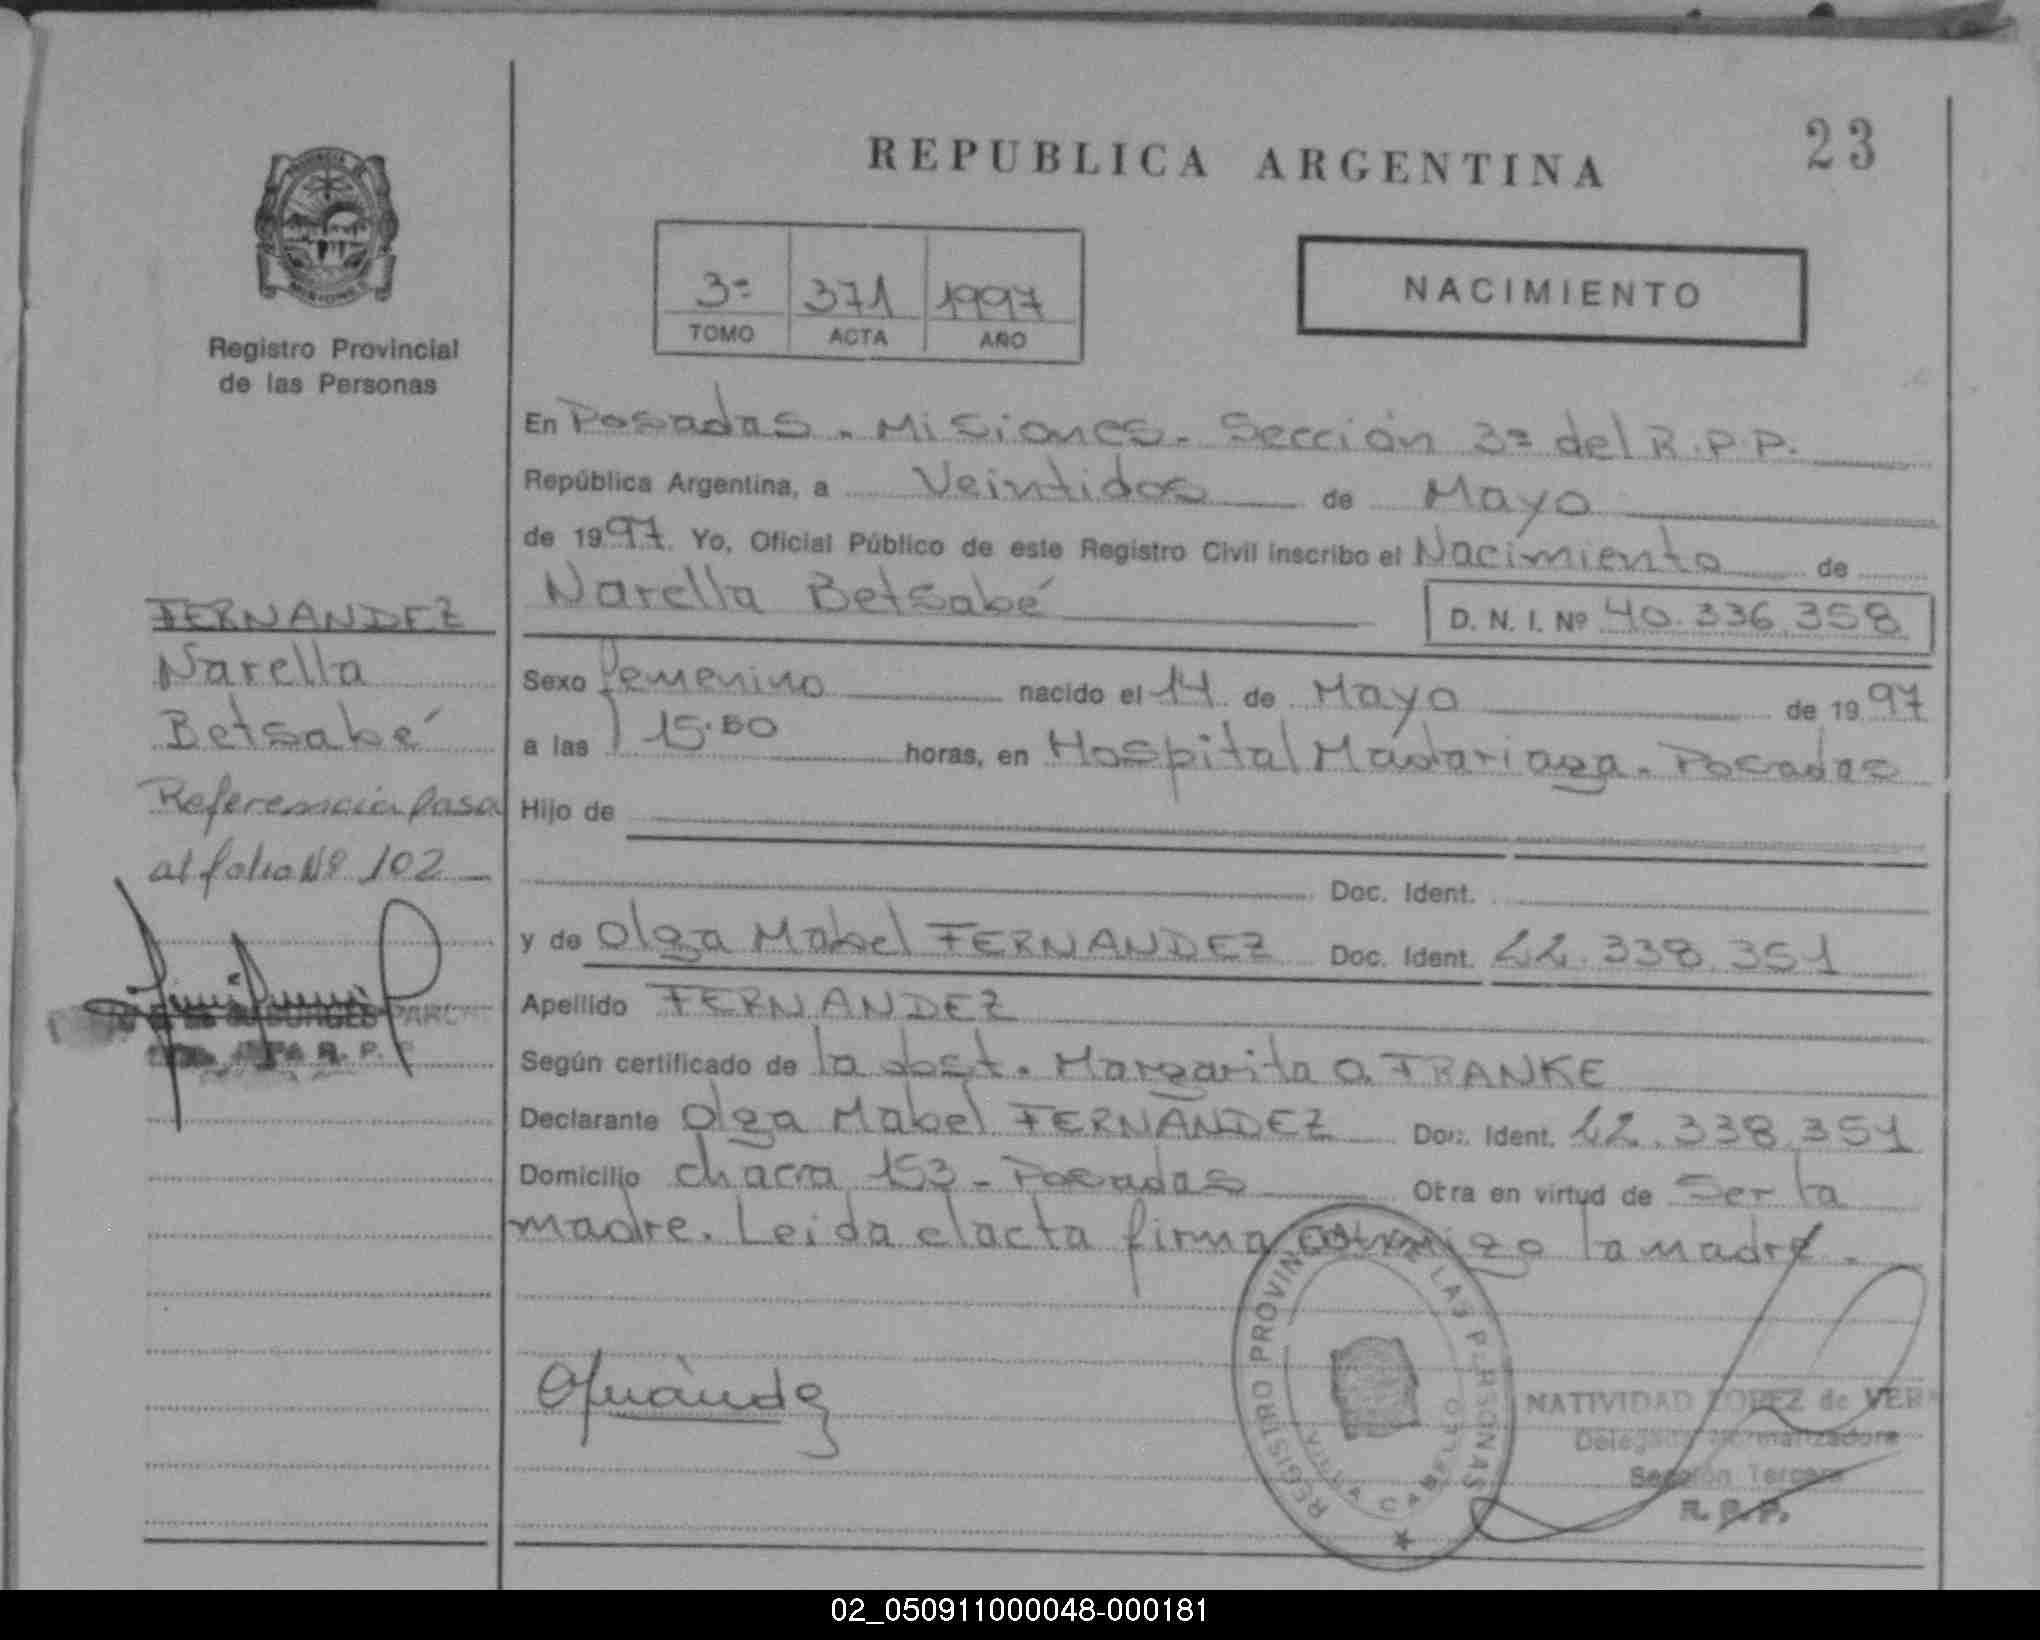 REPUBLICA ARGENTINA
23
3ª 371 1997
TOMO ACTA AÑO
NACIMIENTO
Registro Provincial
de las Personas
En Posadas - Misiones - Sección 3ª del R.P.P.
República Argentina, a Veintidos de Mayo
de 1997. Yo, Oficial Público de este Registro Civil inscribo el Nacimiento de
Narella Betsabé D. N. I. Nº 40.336.358
FERNANDEZ
Narella
Betsabé
Referencia Pasa
al folio Nº 102
R. P. P.
Sexo femenino nacido el 14 de Mayo de 1997
a las horas, en Hospital Madariaga - Posadas
Hijo de
Doc. Ident.
y de Olga Mabel FERNANDEZ Doc. Ident. 22.338.351
Apellido FERNANDEZ
Según certificado de la obst. Margarita O. FRANKE
Declarante Olga Mabel FERNANDEZ Doc. Ident. 22.338.351
Domicilio chacra 153 - Posadas Otra en virtud de Ser la
madre. Leida el acta firma conmigo la madre.
REGISTRO PROVINCIAL DE LAS PERSONAS
NATIVIDAD LOPEZ de VERA
Delegada Normalizadora
Sección Tercera
R. P. P.
02_050911000048-000181